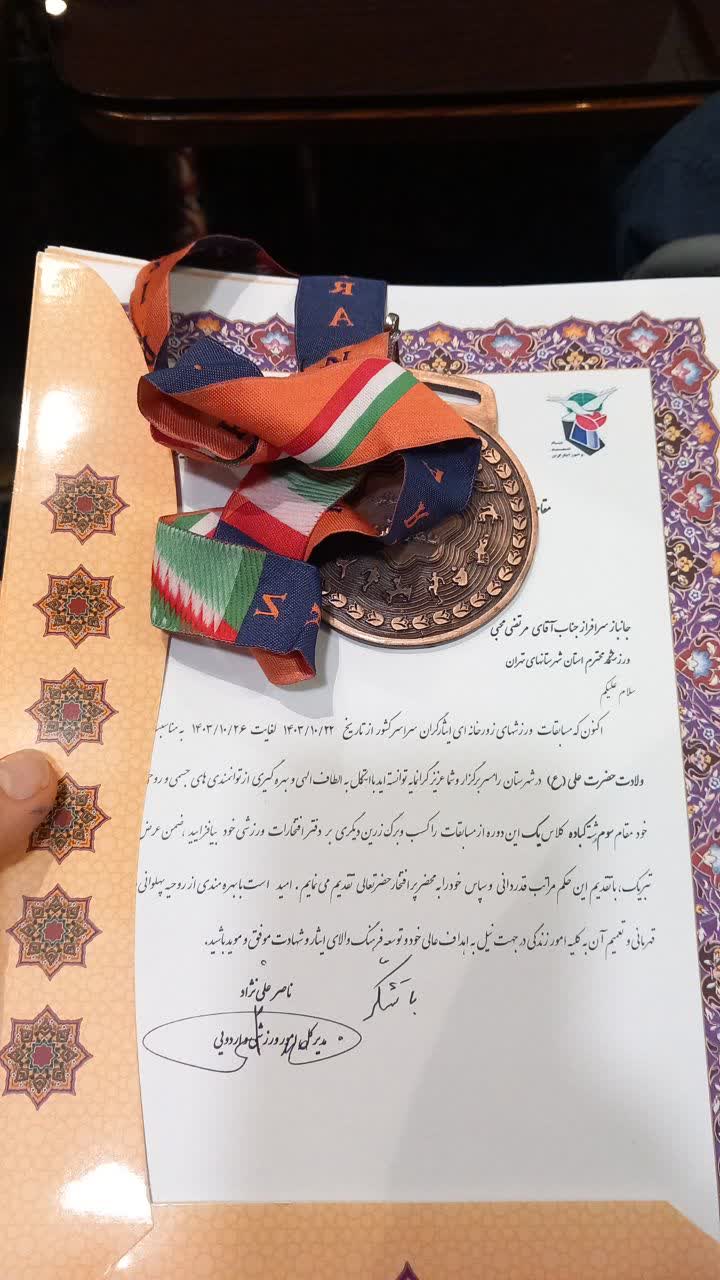 بنیاد
شهید
و امور ایثارگران
جانباز سرافراز جناب آقای مرتضی محبی
ورزشکار محترم استان شهرستانهای تهران
سلام علیکم
اکنون که مسابقات ورزشهای زورخانه ای ایثارگران سراسر کشور از تاریخ ۱۴۰۳/۱۰/۲۲ لغایت ۱۴۰۳/۱۰/۲۶ به مناسبت
ولادت حضرت علی (ع) در شهرستان رامسر برگزار و شما عزیز گرانمایه توانسته اید با اتکال به الطاف الهی و بهره گیری از توانمندی های جسمی و روحی
خود مقام سوم رشته کباده کلاس یک این دوره از مسابقات را کسب و برگ زرین دیگری بر دفتر افتخارات ورزشی خود بیافزایید، ضمن عرض
تبریک، با تقدیم این حکم مراتب قدردانی و سپاس خود را به محضر پر افتخار حضرتعالی تقدیم می نمایم. امید است با بهره مندی از روحیه پهلوانی
قهرمانی و تعمیم آن به کلیه امور زندگی در جهت نیل به اهداف عالی خود و توسعه فرهنگ والای ایثار و شهادت موفق و موید باشید.
با تشکر
ناصر علی نژاد
مدیرکل امور ورزشی و اردویی